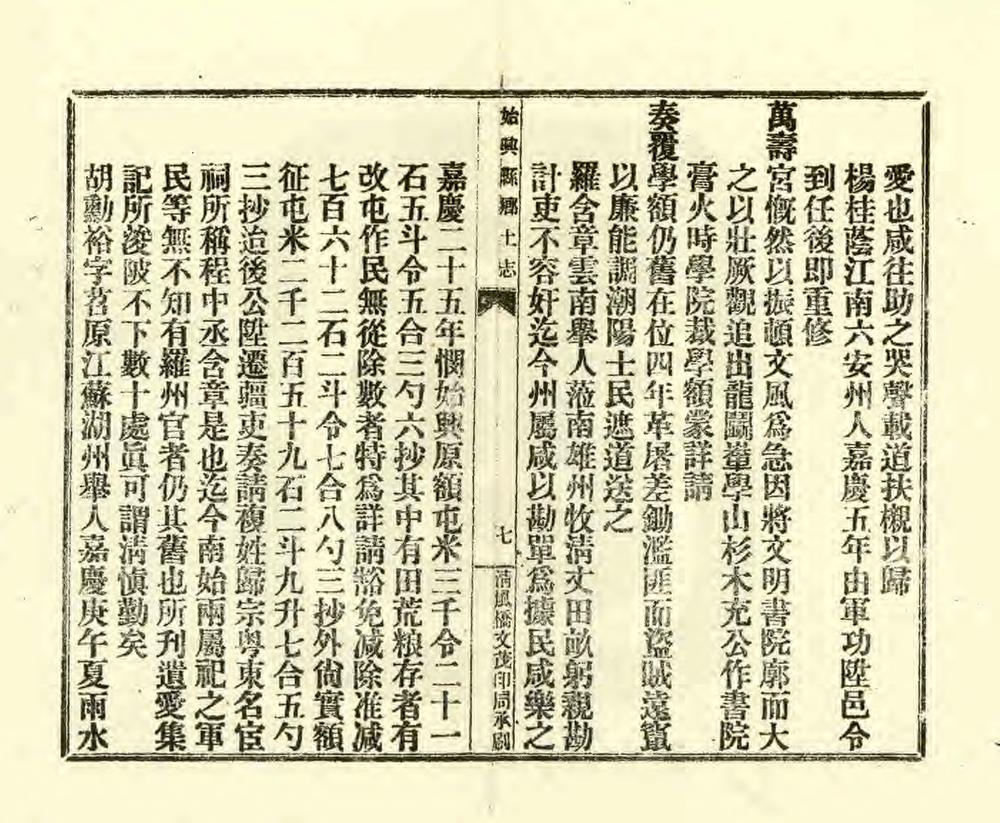 愛也咸往助之哭聲載道扶櫬以歸
楊桂蔭江南六安州人嘉慶五年由軍功陞邑令
到任後即重修
萬壽宮慨然以振頓文風爲急因將文明書院廓而大
之以壯厥觀追出龍鬭輋學山杉木充公作書院
膏火時學院裁學額蒙詳請
奏覆學額仍舊在位四年革屠差鋤濫匪而盜賊遠竄
以廉能調潮陽士民遮道送之
羅含章雲南舉人蒞南雄州牧淸丈田畝躬親勘
計吏不容奸迄今州屬咸以勘單爲據民咸樂之
始興縣鄉土志
七
淸風橋文茂印局承刷
嘉慶二十五年憫始興原額屯米三千令二十一
石五斗令五合三勺六抄其中有田荒粮存者有
改屯作民無從除數者特爲詳請豁免減除准減
七百六十二石二斗令七合八勺三抄外尙實額
征屯米二千二百五十九石二斗九升七合五勺
三抄迨後公陞遷疆吏奏請複姓歸宗粤東名宦
祠所稱程中丞含章是也迄今南始兩屬祀之軍
民等無不知有羅州官者仍其舊也所刊遺愛集
記所浚陂不下數十處眞可謂淸愼勤矣
胡勳裕字茗原江蘇湖州舉人嘉慶庚午夏雨水